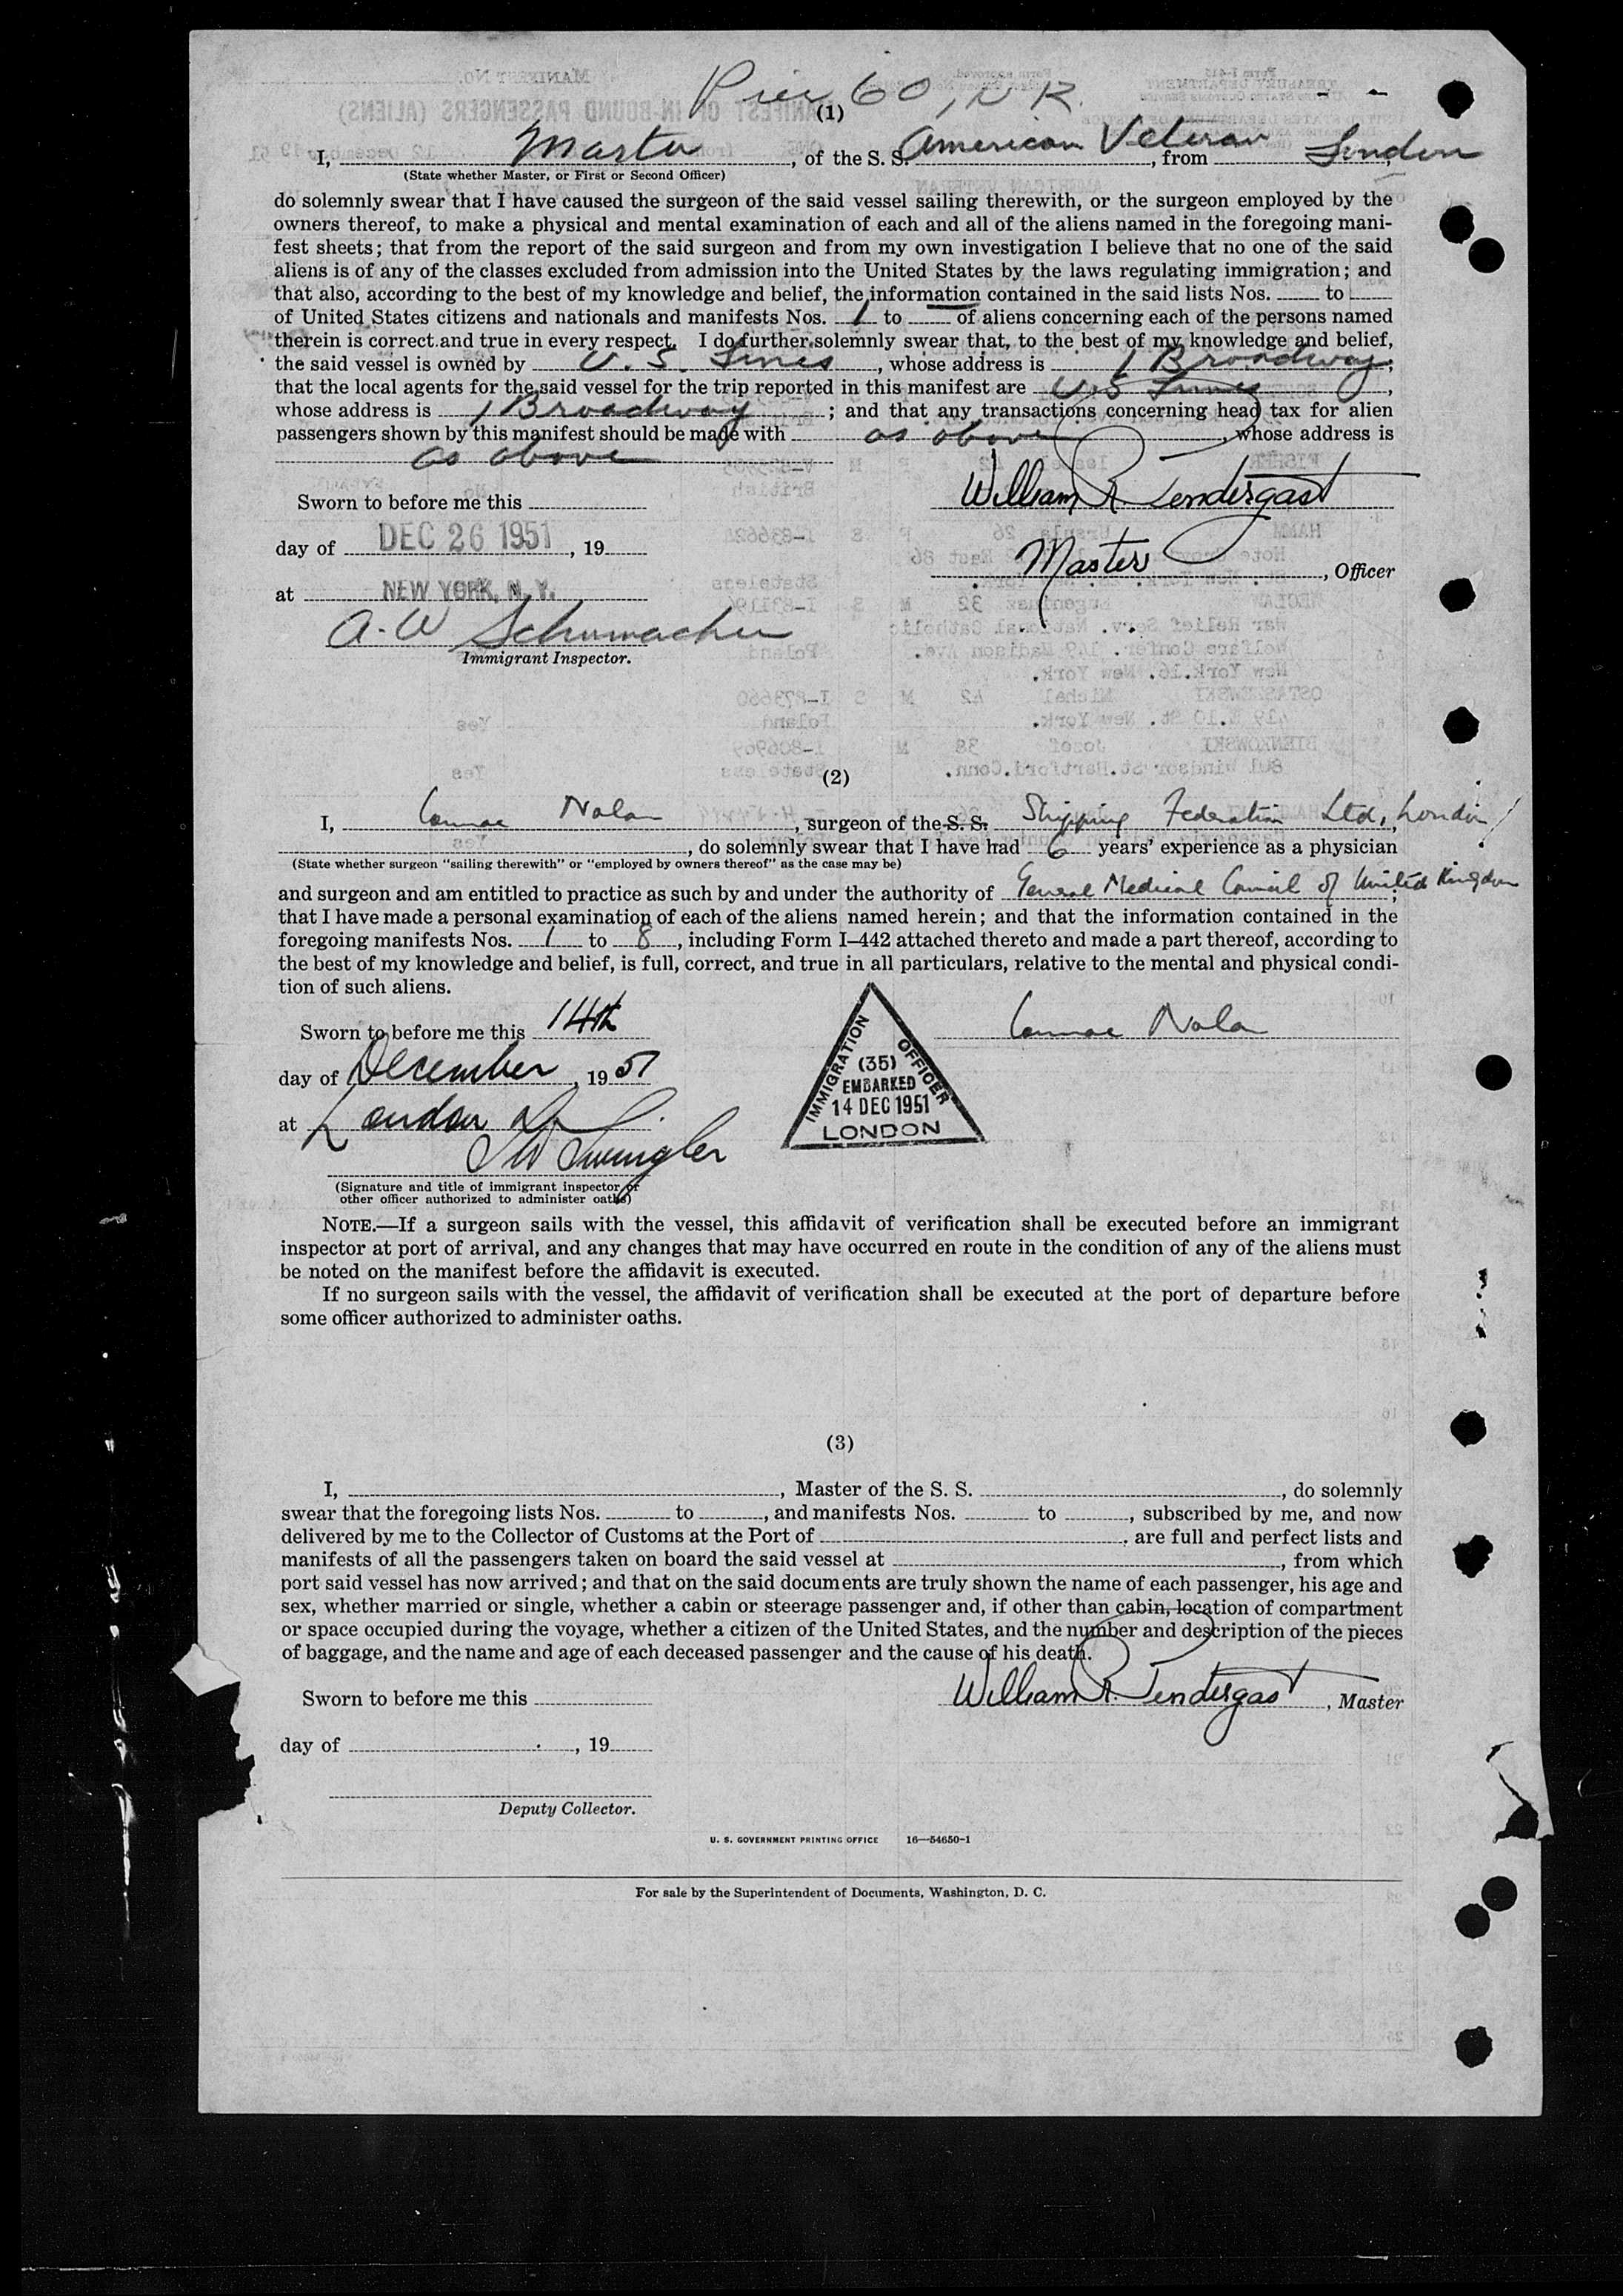 Pier 60, N R.
(1)
I, Master, of the S. S. American Veteran, from London,
(State whether Master, or First or Second Officer)
do solemnly swear that I have caused the surgeon of the said vessel sailing therewith, or the surgeon employed by the
owners thereof, to make a physical and mental examination of each and all of the aliens named in the foregoing mani-
fest sheets; that from the report of the said surgeon and from my own investigation I believe that no one of the said
aliens is of any of the classes excluded from admission into the United States by the laws regulating immigration; and
that also, according to the best of my knowledge and belief, the information contained in the said lists Nos. to
of United States citizens and nationals and manifests Nos. 1 to — of aliens concerning each of the persons named
therein is correct and true in every respect. I do further solemnly swear that, to the best of my knowledge and belief,
the said vessel is owned by U. S. Lines, whose address is 1 Broadway,
that the local agents for the said vessel for the trip reported in this manifest are U.S Lines,
whose address is 1 Broadway; and that any transactions concerning head tax for alien
passengers shown by this manifest should be made with as above, whose address is
as above
William R. Pendergast
Sworn to before me this
day of DEC 26 1951, 19
Master, Officer
at NEW YORK, N. Y.
A. W Schumacher
Immigrant Inspector.
(2)
I, Cormac Nolan, surgeon of the S. S. Shipping Federation Ltd, London,
, do solemnly swear that I have had 6 years' experience as a physician
(State whether surgeon "sailing therewith" or "employed by owners thereof" as the case may be)
and surgeon and am entitled to practice as such by and under the authority of General Medical Council of United Kingdom;
that I have made a personal examination of each of the aliens named herein; and that the information contained in the
foregoing manifests Nos. 1 to 8, including Form I–442 attached thereto and made a part thereof, according to
the best of my knowledge and belief, is full, correct, and true in all particulars, relative to the mental and physical condi-
tion of such aliens.
Sworn to before me this 14th
Cormac Nolan
day of December, 1951
at London
IMMIGRATION OFFICER
(35)
EMBARKED
14 DEC 1951
LONDON
(Signature and title of immigrant inspector or
other officer authorized to administer oaths)
NOTE.—If a surgeon sails with the vessel, this affidavit of verification shall be executed before an immigrant
inspector at port of arrival, and any changes that may have occurred en route in the condition of any of the aliens must
be noted on the manifest before the affidavit is executed.
If no surgeon sails with the vessel, the affidavit of verification shall be executed at the port of departure before
some officer authorized to administer oaths.
(3)
I, , Master of the S. S. , do solemnly
swear that the foregoing lists Nos. to , and manifests Nos. to , subscribed by me, and now
delivered by me to the Collector of Customs at the Port of , are full and perfect lists and
manifests of all the passengers taken on board the said vessel at , from which
port said vessel has now arrived; and that on the said documents are truly shown the name of each passenger, his age and
sex, whether married or single, whether a cabin or steerage passenger and, if other than cabin, location of compartment
or space occupied during the voyage, whether a citizen of the United States, and the number and description of the pieces
of baggage, and the name and age of each deceased passenger and the cause of his death.
Sworn to before me this
William R. Pendergast, Master
day of , 19
Deputy Collector.
U. S. GOVERNMENT PRINTING OFFICE 16—54650-1
For sale by the Superintendent of Documents, Washington, D. C.